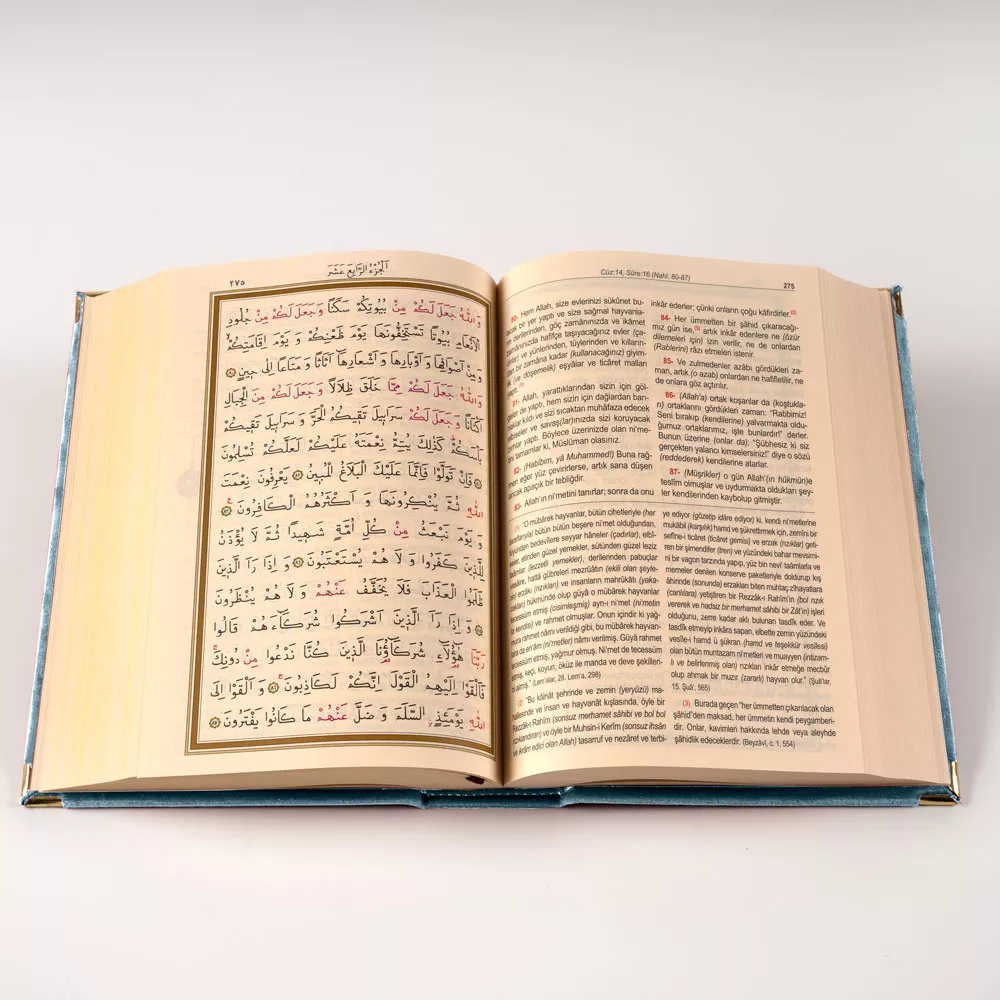 اَلْجُزْءُ الرَّابِعَ عَشَرَ
٢٧٥
وَاللّٰهُ جَعَلَ لَكُمْ مِنْ بُيُوتِكُمْ سَكَنًا وَجَعَلَ لَكُمْ مِنْ جُلُودِ
الْاَنْعَامِ بُيُوتًا تَسْتَخِفُّونَهَا يَوْمَ ظَعْنِكُمْ وَ يَوْمَ اِقَامَتِكُمْ
وَ مِنْ اَصْوَافِهَا وَ اَوْبَارِهَا وَ اَشْعَارِهَا اَثَاثًا وَ مَتَاعًا اِلٰى حٖينٍ ﴿٨٠﴾
وَاللّٰهُ جَعَلَ لَكُمْ مِمَّا خَلَقَ ظِلَالًا وَجَعَلَ لَكُمْ مِنَ الْجِبَالِ
اَكْنَانًا وَ جَعَلَ لَكُمْ سَرَابٖيلَ تَقٖيكُمُ الْحَرَّ وَ سَرَابٖيلَ تَقٖيكُمْ
بَاْسَكُمْ كَذٰلِكَ يُتِمُّ نِعْمَتَهُ عَلَيْكُمْ لَعَلَّكُمْ تُسْلِمُونَ
﴿٨١﴾ فَاِنْ تَوَلَّوْا فَاِنَّمَا عَلَيْكَ الْبَلَاغُ الْمُبٖينُ ﴿٨٢﴾ يَعْرِفُونَ نِعْمَتَ
اللّٰهِ ثُمَّ يُنْكِرُونَهَا وَ اَكْثَرُهُمُ الْكَافِرُونَ ﴿٨٣﴾
وَ يَوْمَ نَبْعَثُ مِنْ كُلِّ اُمَّةٍ شَهٖيدًا ثُمَّ لَا يُؤْذَنُ
لِلَّذٖينَ كَفَرُوا وَ لَا هُمْ يُسْتَعْتَبُونَ ﴿٨٤﴾ وَ اِذَا رَاَ الَّذٖينَ
ظَلَمُوا الْعَذَابَ فَلَا يُخَفَّفُ عَنْهُمْ وَ لَا هُمْ يُنْظَرُونَ
﴿٨٥﴾ وَ اِذَا رَاَ الَّذٖينَ اَشْرَكُوا شُرَكَاءَهُمْ قَالُوا
رَبَّنَا هٰؤُلَاءِ شُرَكَاؤُنَا الَّذٖينَ كُنَّا نَدْعُوا مِنْ دُونِكَ
فَاَلْقَوْا اِلَيْهِمُ الْقَوْلَ اِنَّكُمْ لَكَاذِبُونَ ﴿٨٦﴾ وَ اَلْقَوْا اِلَى
اللّٰهِ يَوْمَئِذٍ السَّلَمَ وَ ضَلَّ عَنْهُمْ مَا كَانُوا يَفْتَرُونَ ﴿٨٧﴾
Cüz:14, Sûre:16 (Nahl: 80-87)
275
80- Hem Allah, size evlerinizi sükûnet bu-
acak bir yer yaptı ve size sağmal hayvanla-
derilerinden, göç zamânınızda ve ikâmet
zamânınızda hafifçe taşıyacağınız evler (ça-
ve yünlerinden, tüylerinden ve kılların-
bir zamâna kadar (kullanacağınız) giyim-
(ve döşemelik) eşyâlar ve ticâret malları
yaptı.
81- Allah, yarattıklarından sizin için göl-
de yaptı, hem sizin için dağlardan barı-
kıldı ve sizi sıcaktan muhâfaza edecek
elbiseler ve savaş(lar)ınızda sizi koruyacak
yaptı. Böylece üzerinizde olan ni'me-
tamamlar ki, Müslüman olasınız.
82- (Habîbim, yâ Muhammed!) Buna rağ-
eğer yüz çevirirlerse, artık sana düşen
ancak apaçık bir tebliğdir.
83- Allah'ın ni'metini tanırlar; sonra da onu
inkâr ederler; çünki onların çoğu kâfirdirler.(2)
84- Her ümmetten bir şâhid çıkaracağı-
mız gün ise,(3) artık inkâr edenlere ne (özür
dilemeleri için) izin verilir, ne de onlardan
(Rablerini) râzı etmeleri istenir.
85- Ve zulmedenler azâbı gördükleri za-
man, artık (o azab) onlardan ne hafifletilir, ne
de onlara göz açtırılır.
86- (Allah'a) ortak koşanlar da (koştukla-
rı) ortaklarını gördükleri zaman: "Rabbimiz!
Seni bırakıp (kendilerine) yalvarmakta oldu-
ğumuz ortaklarımız, işte bunlardır!" derler.
Bunun üzerine (onlar da): "Şübhesiz ki siz
gerçekten yalancı kimselersiniz!" diye o sözü
(reddederek) kendilerine atarlar.
87- (Müşrikler) o gün Allah'(ın hükmün)e
teslîm olmuşlar ve uydurmakta oldukları şey-
ler kendilerinden kaybolup gitmiştir.
(1) "O mübârek hayvanlar, bütün cihetleriyle (her
taraflarıyla) bütün bütün beşere ni'met olduğundan,
tüyünden bedevîlere seyyar hâneler (çadırlar), elbi-
seler, etinden güzel yemekler, sütünden güzel leziz
(lezzetli yemekler), derilerinden pabuçlar
vesâire, hattâ gübreleri mezrûâtın (ekili olan şeyle-
rin) erzâkı (rızıkları) ve insanların mahrûkâtı (yaka-
hükmünde olup gûyâ o mübârek hayvanlar
tecessüm etmiş (cisimleşmiş) ayn-ı ni'met (ni'metin
kendisi) ve rahmet olmuşlar. Onun içindir ki yağ-
mura rahmet nâmı verildiği gibi, bu mübârek hayvan-
lara da en'âm (ni'metler) nâmı verilmiş. Gûyâ rahmet
tecessüm etmiş, yağmur olmuş. Ni'met de tecessüm
etmiş, keçi, koyun, öküz ile manda ve deve şekilleri-
ni almış." (Lem'alar, 28. Lem'a, 298)
(2) "Bu kâinât şehrinde ve zemin (yeryüzü) ma-
hallesinde ve insan ve hayvanât kışlasında, öyle bir
Rezzâk-ı Rahîm (sonsuz merhamet sâhibi ve bol bol
rızıklandıran) ve öyle bir Muhsin-i Kerîm (sonsuz ihsân
ve ikrâm edici olan Allah) tasarruf ve nezâret ve terbi-
ye ediyor (gözetip idâre ediyor) ki, kendi ni'metlerine
mukābil (karşılık) hamd ve şükrettirmek için, zemîni bir
sefîne-i ticâret (ticâret gemisi) ve erzak (rızıklar) geti-
ren bir şimendifer (tren) ve yüzündeki bahar mevsimi-
ni bir vagon tarzında yapıp, yüz bin nevi' taâmlarla ve
memeler denilen konserve paketleriyle doldurup kış
âhirinde (sonunda) erzakları biten muhtaç zîhayatlara
(canlılara) yetiştiren bir Rezzâk-ı Rahîm'in (bol rızık
vererek ve hadsiz bir merhamet sâhibi bir Zât'ın) işleri
olduğunu, zerre kadar aklı bulunan tasdîk eder. Ve
tasdîk etmeyip inkâra sapan, elbette zemin yüzündeki
vesîle-i hamd ü şükran (hamd ve teşekkür vesîlesi)
olan bütün muntazam ni'metleri ve muayyen (intizam-
lı ve belirlenmiş olan) rızıkları inkâr etmeğe mecbûr
olup ahmak bir muzır (zararlı) hayvan olur." (Şuâ'lar,
15. Şuâ', 565)
(3) Burada geçen "her ümmetten çıkarılacak olan
şâhid"den maksad, her ümmetin kendi peygamberi-
dir. Onlar, kavimleri hakkında lehde veya aleyhde
şâhidlik edeceklerdir. (Beyzâvî, c. 1, 554)